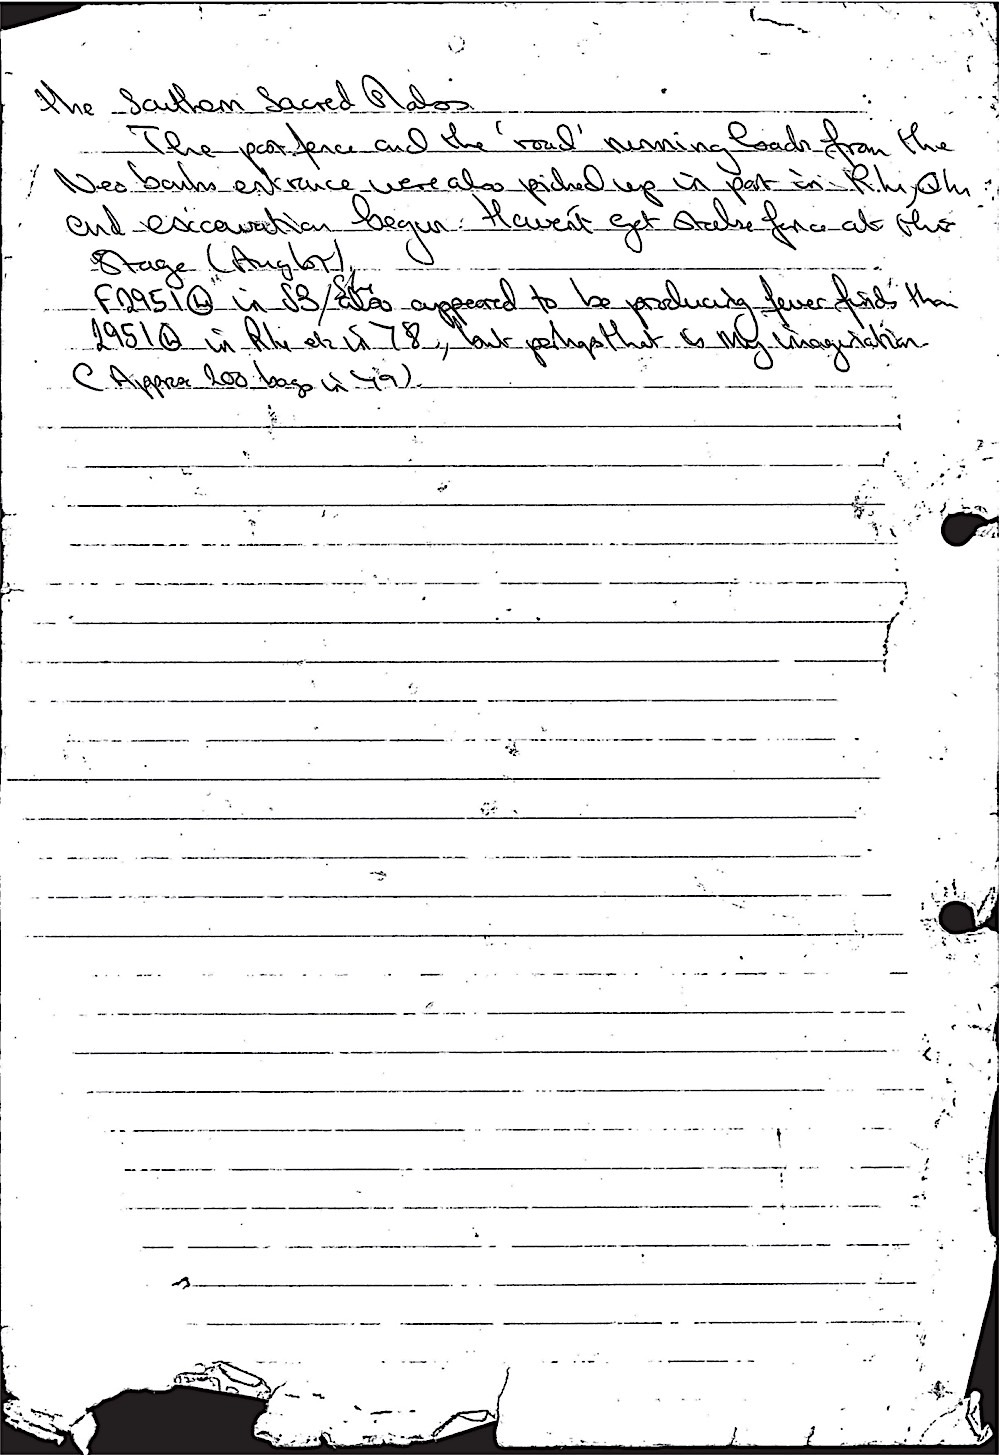 the Southern Sacred
The post fence and the 'road' running from the
Neo entrance were also picked up in part in
and excavation begun. Haven't get fence at this
Stage
F2951 in S3/ appeared to be producing fewer finds than
2951 in etc in 78, but perhaps that is my imagination
(Approx 200 bags in 79).